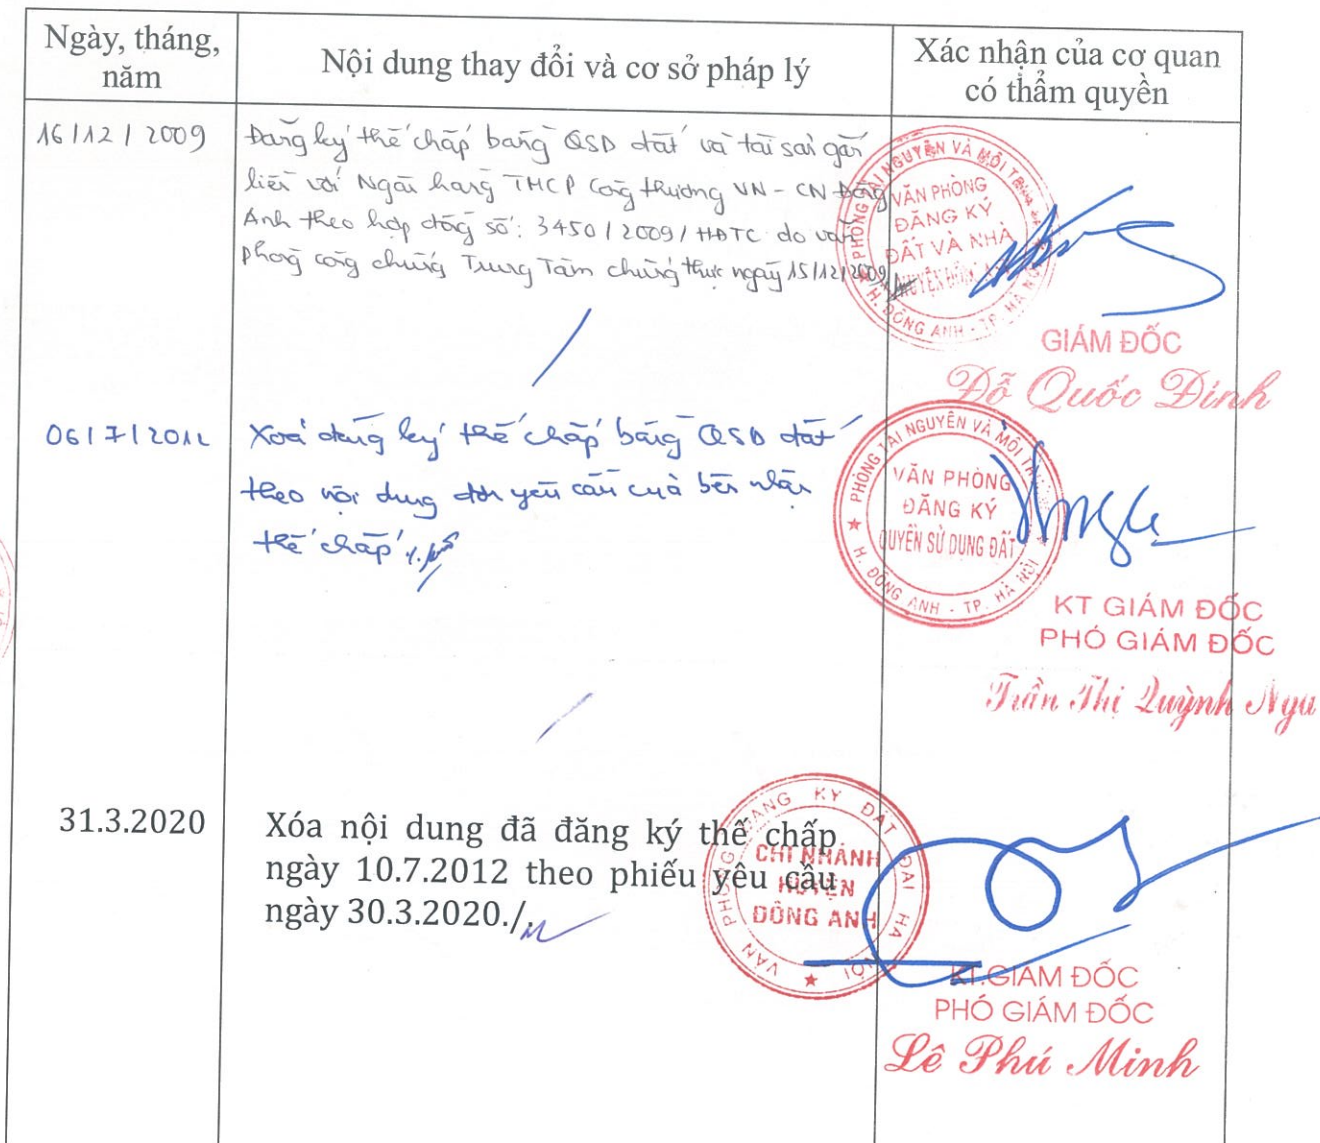 Ngày, tháng,
năm
Nội dung thay đổi và cơ sở pháp lý
Xác nhận của cơ quan
có thẩm quyền
16/12/2009
Đăng ký thế chấp bằng QSD đất và tài sản gắn
liền với Ngân hàng TMCP Công thương VN - CN Đông
Anh theo hợp đồng số: 3450/2009/HĐTC do văn
phòng công chứng Trung Tâm chứng thực ngày 15/12/2009
PHÒNG TÀI NGUYÊN VÀ MÔI TRƯỜNG
VĂN PHÒNG
ĐĂNG KÝ
ĐẤT VÀ NHÀ
HUYỆN ĐÔNG ANH
H. ĐÔNG ANH - TP. HÀ NỘI
GIÁM ĐỐC
Đỗ Quốc Đính
06/7/2012
Xoá đăng ký thế chấp bằng QSD đất
theo nội dung đơn yêu cầu của bên nhận
thế chấp
PHÒNG TÀI NGUYÊN VÀ MÔI TRƯỜNG
VĂN PHÒNG
ĐĂNG KÝ
QUYỀN SỬ DỤNG ĐẤT
H. ĐÔNG ANH - TP. HÀ NỘI
KT GIÁM ĐỐC
PHÓ GIÁM ĐỐC
Trần Thị Quỳnh Nga
31.3.2020
Xóa nội dung đã đăng ký thế chấp
ngày 10.7.2012 theo phiếu yêu cầu
ngày 30.3.2020./.
VĂN PHÒNG ĐĂNG KÝ ĐẤT ĐAI HÀ NỘI
CHI NHÁNH
HUYỆN
ĐÔNG ANH
KT.GIÁM ĐỐC
PHÓ GIÁM ĐỐC
Lê Phú Minh